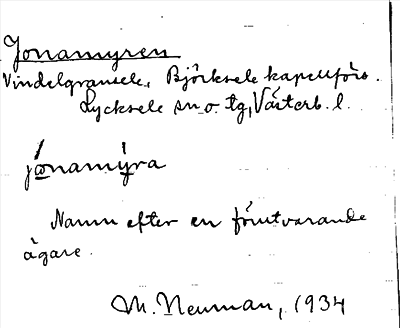 Jonamyren
Vindelgransele, Björksele kapellförs.
Lycksele sn o. tg, Västerb. l.
jonamyra
Namn efter en förutvarande
ägare.
M. Neuman, 1934